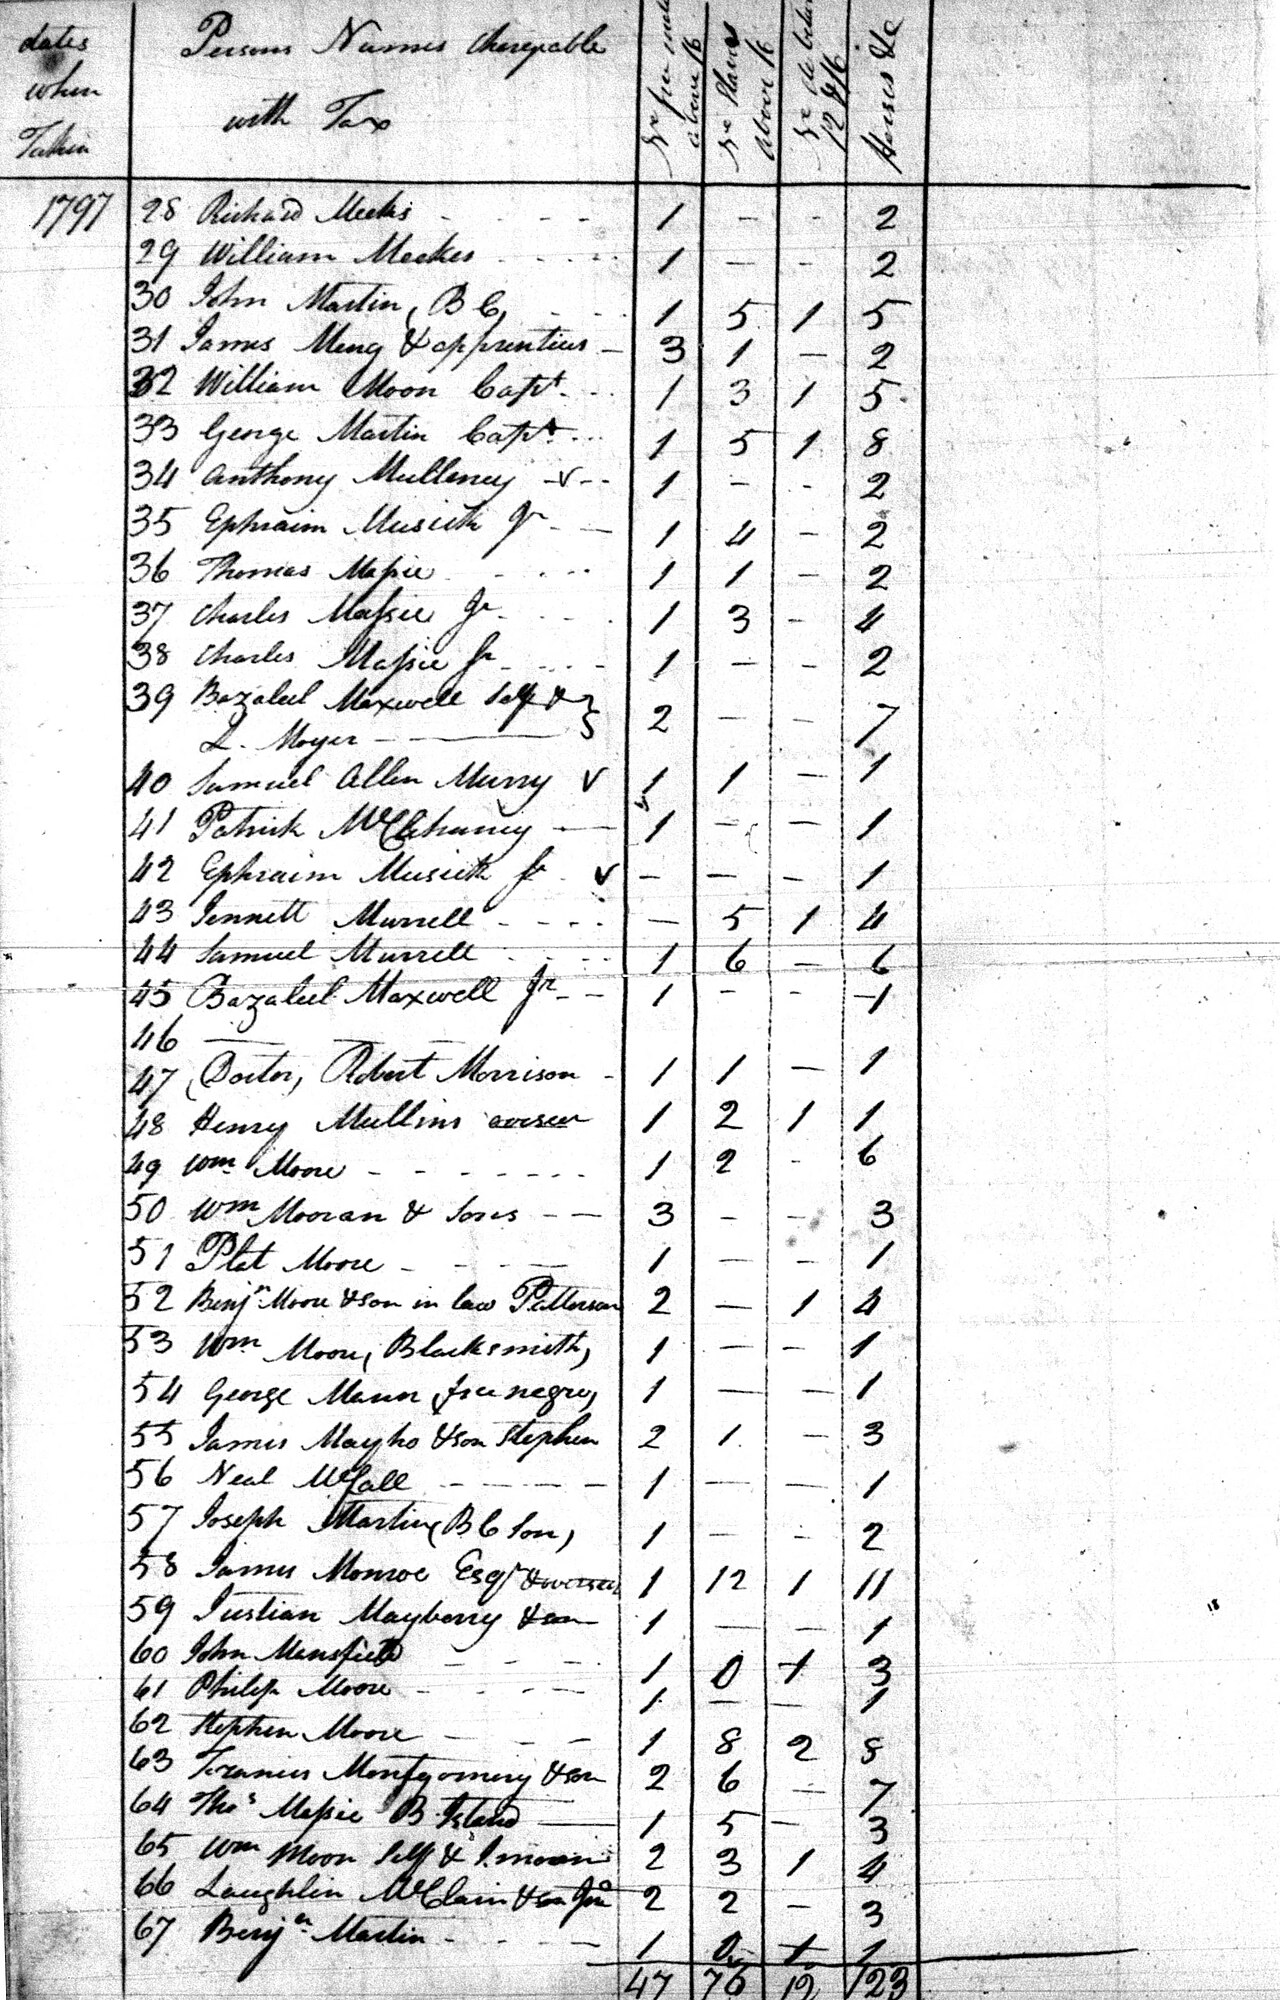 dates when Taken
Persons Names chargeable with Tax
No free males above 16
No Slaves above 16
No do betwn 12 & 16
Horses &c
1797 28 Richard Meeks - - - - 1 - - 2
29 William Meekes - - - - 1 - - 2
30 John Martin, (B C) - - 1 5 1 5
31 James Meng & apprentices - 3 1 - 2
32 William Moon Capt. - - 1 3 1 5
33 George Martin Capt. - - 1 5 1 8
34 Anthony Mulleney - v - - 1 - - 2
35 Ephraim Musick Jr - - 1 4 - 2
36 Thomas Massie - - - - 1 1 - 2
37 Charles Massie Jr - - - 1 3 - 4
38 Charles Massie Sr - - - 1 - - 2
39 Bazaleel Maxwell Self & }
L. Moyer - - } 2 - - 7
40 Samuel Allen Murry v 1 1 - 1
41 Patrick - 1 - - 1
42 Ephraim Musick Sr v - - - 1
43 Jennett Murrell - - - - - 5 1 4
44 Samuel Murrell - - - - 1 6 - 6
45 Bazaleel Maxwell Jr - - 1 - - 1
46 - - -
47 (Doctor) Robert Morrison - 1 1 - 1
48 Henry Mullins overseer 1 2 1 1
49 Wm Moore - - - - - - 1 2 - 6
50 Wm Mooran & Sons - - 3 - - 3
51 Plat Moore - - - - 1 - - 1
52 Benjn Moore & son in law Patterson 2 - 1 4
53 Wm Moore, (Blacksmith) 1 - - 1
54 George Mann (free negro) 1 - - 1
55 James Mayho & son Stephen 2 1 - 3
56 Neal McCall - - - - 1 - - 1
57 Joseph Martin (B C Son) 1 - - 2
58 James Monroe Esqr & overseer 1 12 1 11
59 Justian Mayberry & son 1 - - 1
60 John Mansfield - - - 1 0 1 3
61 Philip Moore - - - - 1 - - 1
62 Stephen Moore - - - 1 8 2 8
63 Francis Montgomery & son 2 6 - 7
64 Thos Massie B. Island - 1 5 - 3
65 Wm Moon Self & J. moon 2 3 1 4
66 Laughlin McClain & son Jno 2 2 - 3
67 Benjn Martin - - - - 1 0 1 1
47 76 12 123